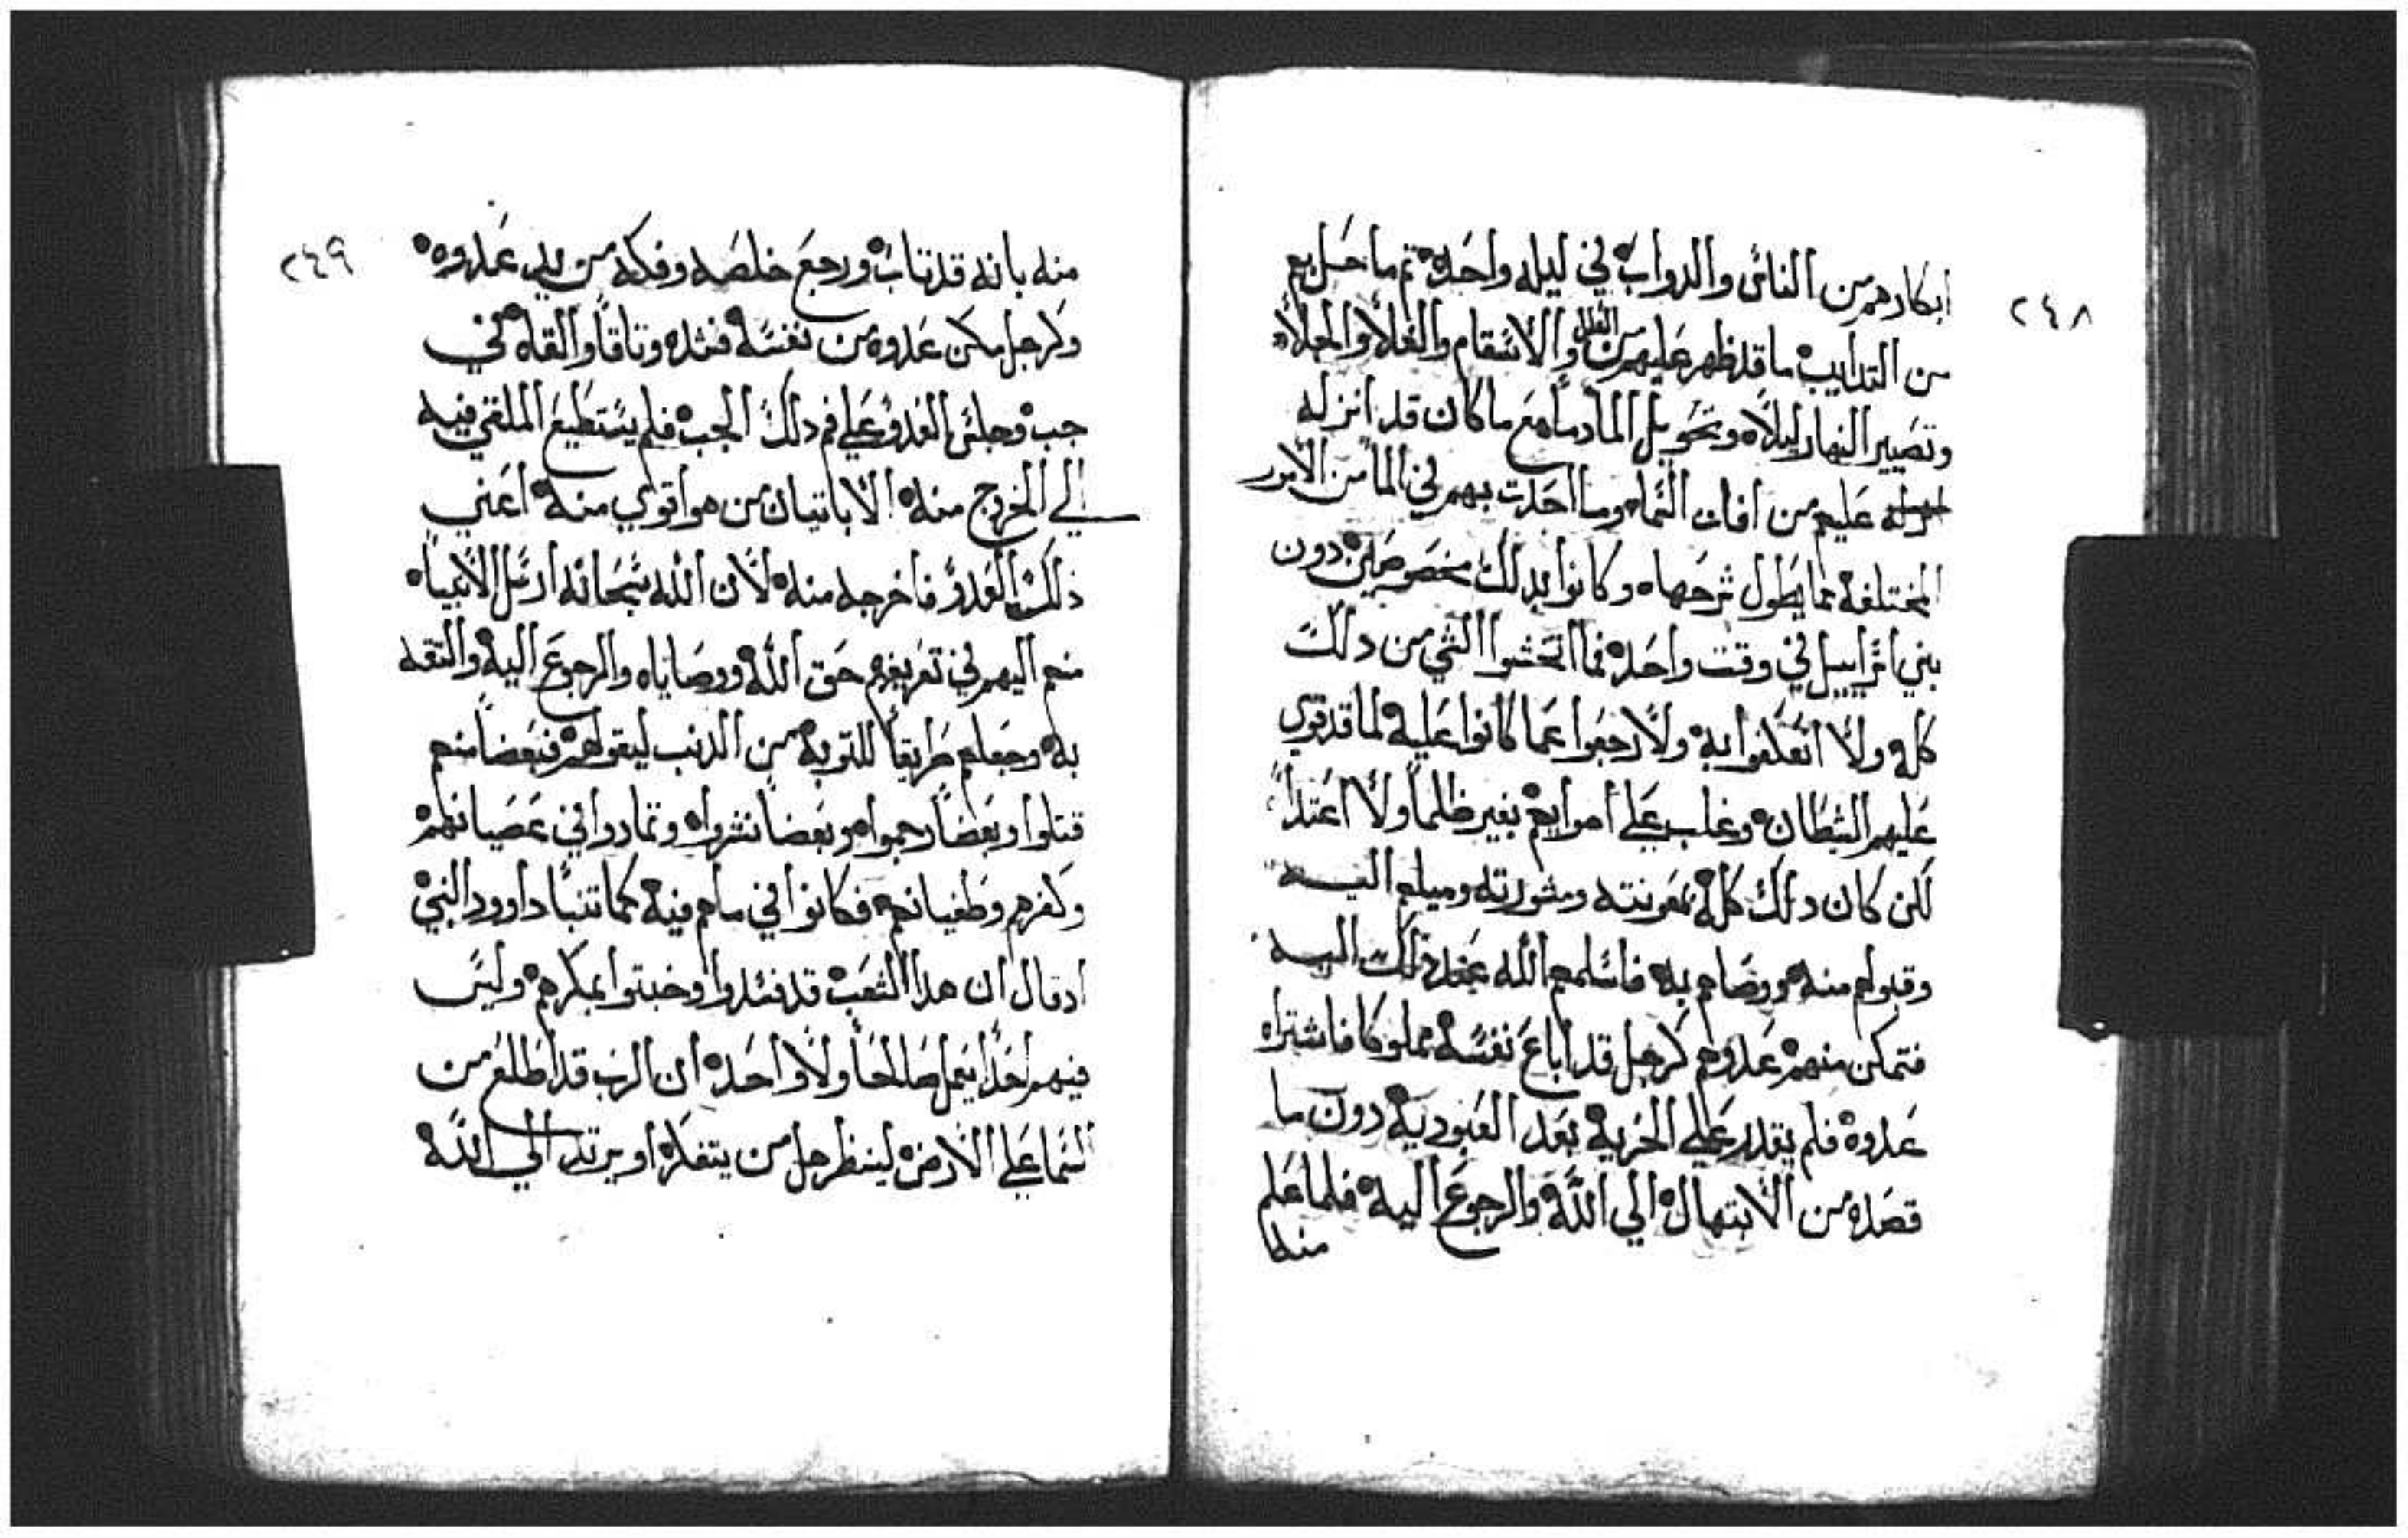 ٢٤٨
ابكارهم من الناس والدواب في ليله واحده ثم ما حل بهم
من التدايب ما قد ظهر عليهم من القمل والاسقام والغلاء والبلاء
وتصيير النهار ليلاه وتحويل الما دماه مع ما كان قد انزله
عليهم من افات السماه وما احدت بهم في الما من الامور
المختلفه مما يطول شرحهاه وكانوا بدلك مخصوصين دون
بني اسراييل في وقت واحده فما اتحشوا الشي من دلك
كله ولا اتعكفوا به ولا رجعوا عما كانوا عليه لما قد قوي
عليهم الشيطان وغلب علي اهوايهم بغير ظلما ولا اعتدا
لكن كان دلك كله بمعونته ومشورته وميلهم اليه
وقبولهم منه ورضاهم به فاسلمهم الله عند دلك اليه
فتمكن منهم عدوهم كرجل قد اباع نفسه مملوكا فاشتراه
عدوه فلم يقدر علي الحريه بعد العبوديه دون ما
قصده من الابتهال الي الله والرجوع اليه فلما علم
٢٤٩
منه بانه قد تاب ورجع خلصه وفكه من يد عدوه
وكرجل مكن عدوه من نفسه فشده وتاقا والقاه في
جب وجلس العدو علي فم دلك الجب فلم يستطيع الملقي فيه
الي الخروج منه الا باتيان من هو اقوي منه اعني
ذلك العدو فاخرجه منه لان الله سبحانه ارسل الانبياه
منهم اليهم في تعريفهم حق الله ووصاياه والرجوع اليه والتقه
به وجعلهم طريقا للتوبه من الدنب ليقولهم فبعضا منهم
قتلوا وبعضا رجموا وبعضا نشرواه وتمادوا في عصيانهم
وكفرهم وطغيانهم فكانوا في ماهم فيه كما تنبا داوود النبي
ادقال ان هدا الشعب قد فسدوا وخبتوا بمكرهم وليس
فيهم احدا يعمل صالحا ولا واحده ان الرب قد اطلع من
السما علي الارض لينظر هل من يتفكر او يرتد الي الله